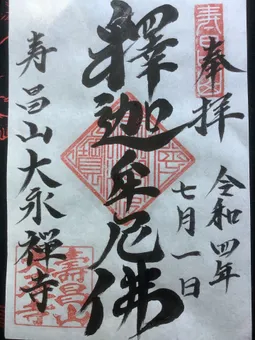 奉拝
令和四年
七月一日
釋迦牟尼佛
寿昌山大永禪寺